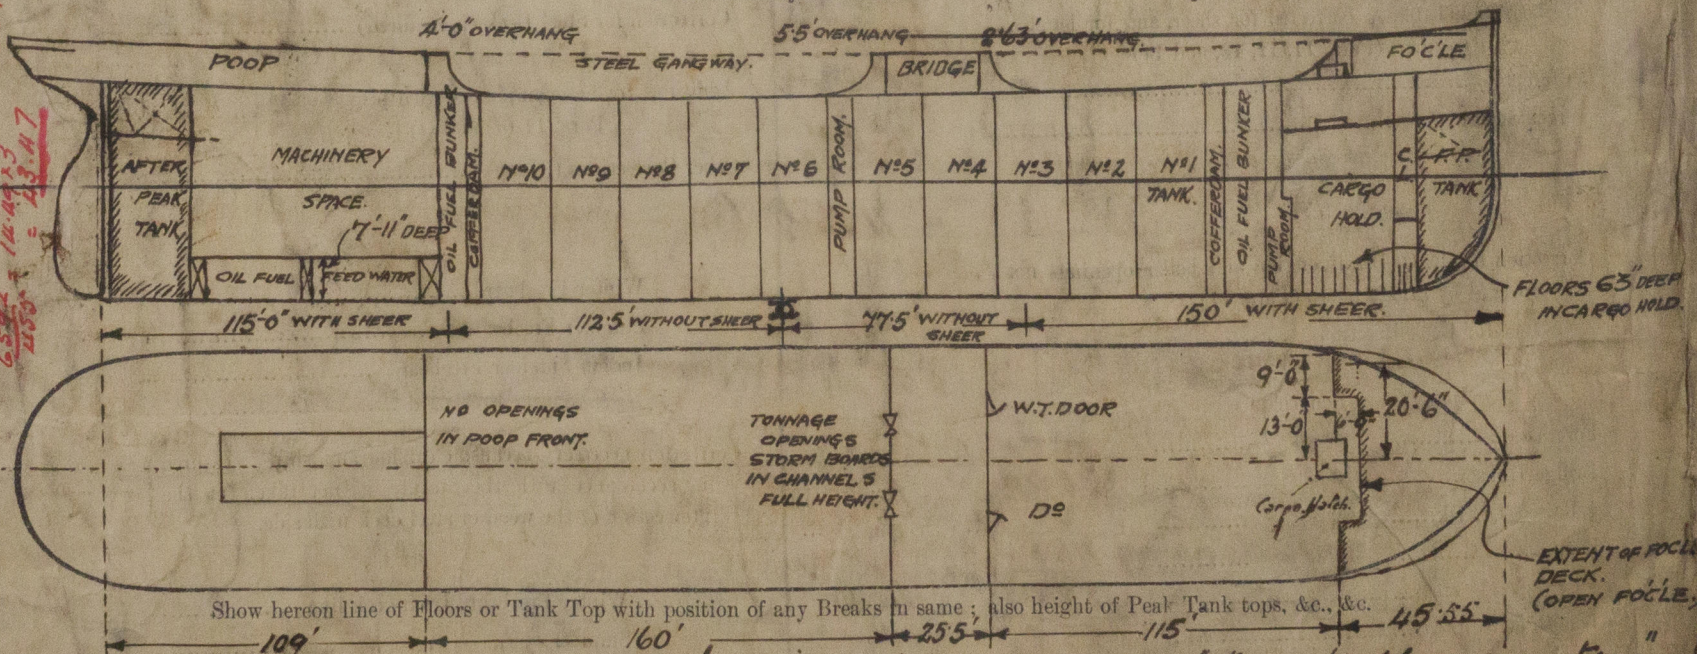 4'-0" OVERHANG
5.5' OVERHANG
2.63' OVERHANG
POOP
STEEL GANGWAY.
BRIDGE
FO'C'LE
AFTER
PEAK
TANK
MACHINERY
SPACE.
7'-11" DEEP
OIL FUEL
FEED WATER
OIL FUEL BUNKER
COFFERDAM.
Nº10
Nº9
Nº8
Nº7
Nº6
PUMP ROOM.
Nº5
Nº4
Nº3
Nº2
Nº1
TANK.
COFFERDAM.
OIL FUEL BUNKER
PUMP
ROOM.
CARGO
HOLD.
C.
L.
F.P.
TANK
FLOORS 63" DEEP
IN CARGO HOLD.
115'-0" WITH SHEER
112.5' WITHOUT SHEER
77.5' WITHOUT
SHEER
150' WITH SHEER.
NO OPENINGS
IN POOP FRONT.
TONNAGE
OPENINGS
STORM BOARDS
IN CHANNELS
FULL HEIGHT.
W.T. DOOR
Dº
9'-0"
13'-0"
6'-0"
20'-6"
Cargo Hatch.
EXTENT OF FOCLE
DECK.
(OPEN FO'C'LE,
Show hereon line of Floors or Tank Top with position of any Breaks in same ; also height of Peak Tank tops, &c., &c.
109'
160'
25.5'
115'
45.55
= 43.47